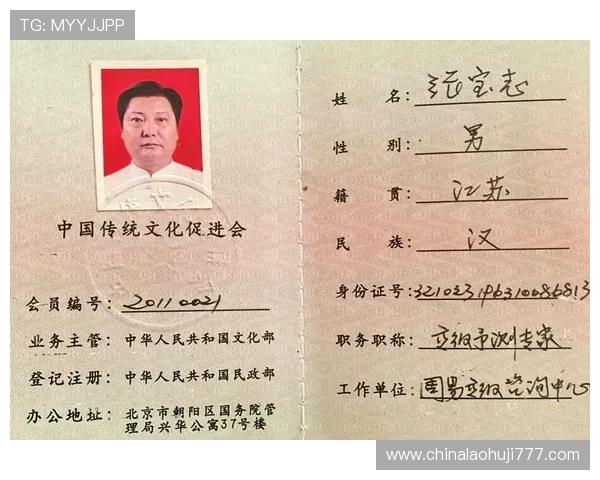 TG: MYYJJPP
中国传统文化促进会
会员编号: 20110021
业务主管: 中华人民共和国文化部
登记注册: 中华人民共和国民政部
办公地址: 北京市朝阳区国务院管
理局兴华公寓37号楼
姓 名: 张宝志
性 别: 男
籍 贯: 江苏
民 族: 汉
身份证号: 321023196310086813
职务职称: 高级予测专家
工作单位: 周易高级咨询中心
www.chinalaohuji777.com